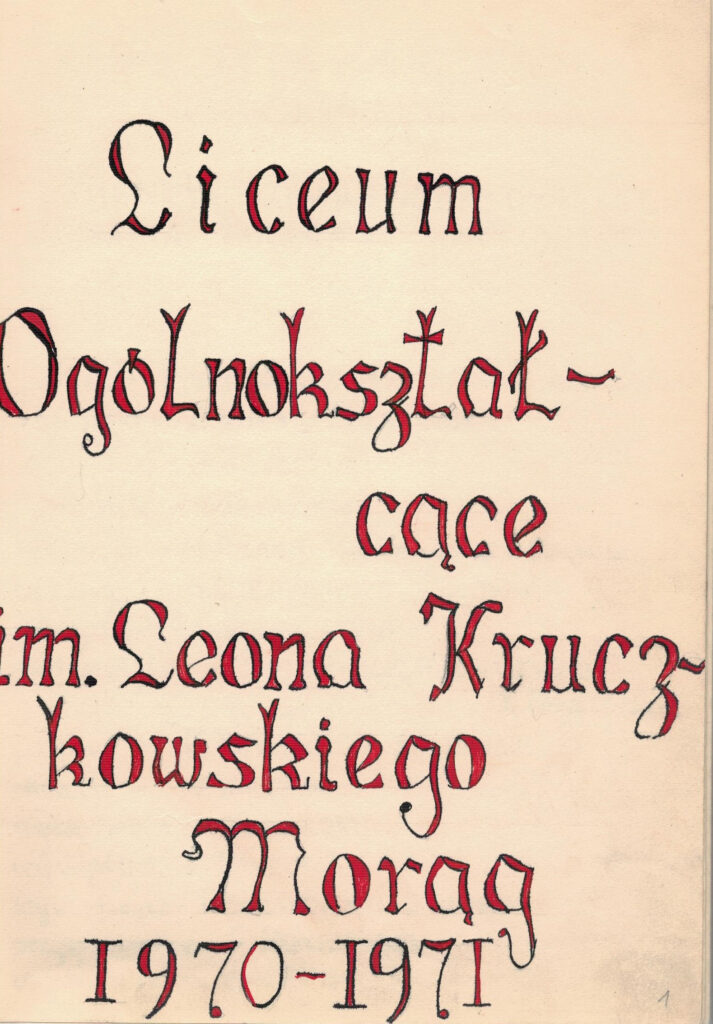 Liceum
Ogólnokształ-
cące
im. Leona Krucz-
kowskiego
Morąg
1970-1971
1